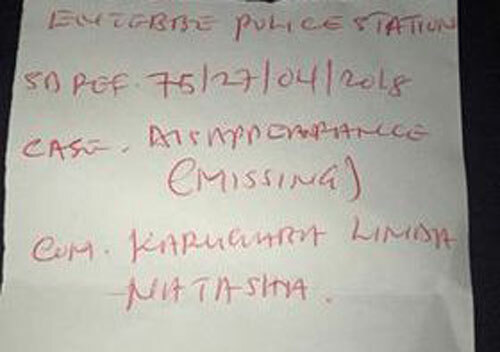 ENTEBBE POLICE STATION
SD REF. 75/27/04/2018
CASE. DISAPPEARANCE
(MISSING)
COM. KARUGURA LINDA
NATASHA.